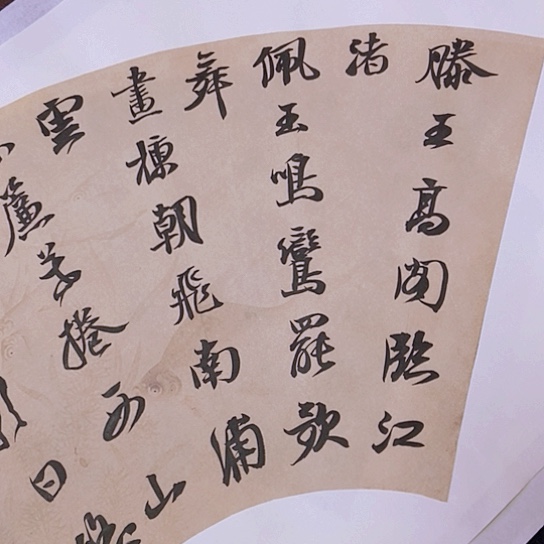 滕王高閣臨江
渚
佩玉鳴鸞罷歌
舞
畫棟朝飛南浦
雲
簾暮捲西山
日